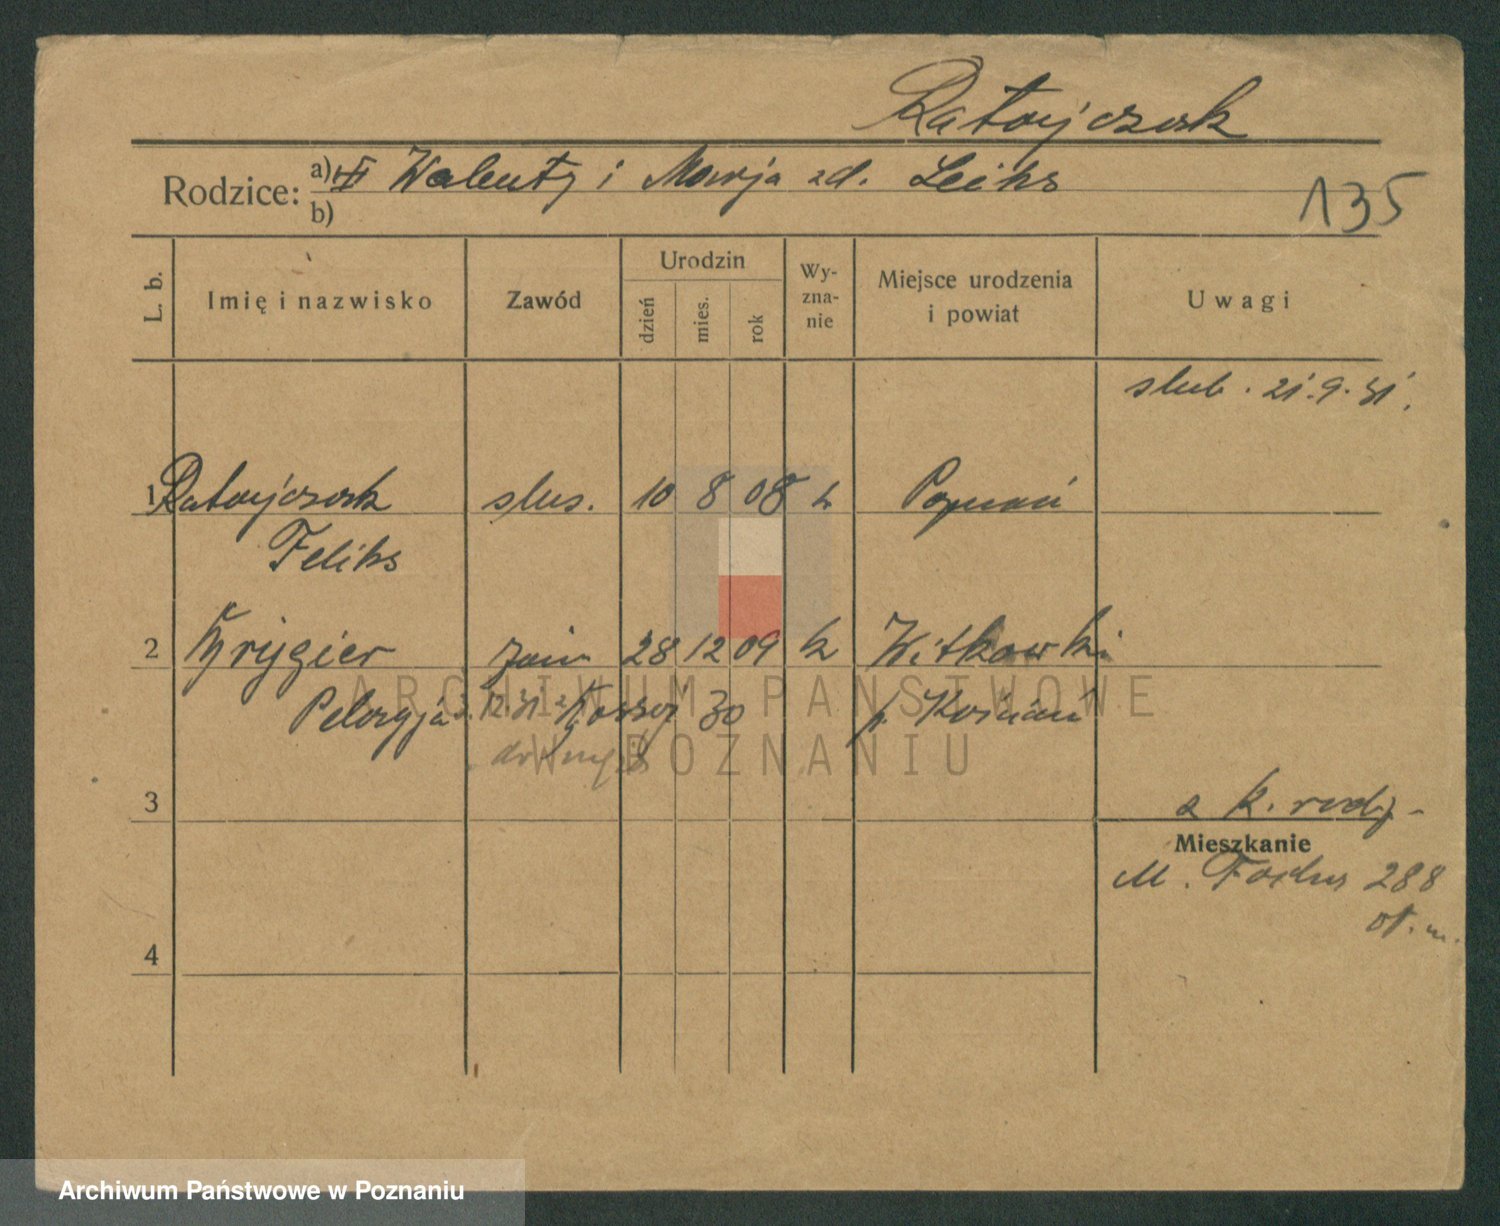 Ratajczak
Rodzice: a) Walenty i Marja zd. Leiks
b)
135
L. b.
Imię i nazwisko
Zawód
Urodzin
dzień
mies.
rok
Wy-
zna-
nie
Miejsce urodzenia
i powiat
Uwagi
ślub. 21.9.31.
1 Ratajczak ślus. 10 8 08 k Poznań
Feliks
2 Krygier 28 12 09 k Witkowki
Pelagja 12.31 30 p. Kościan
3
z k. rodz.
Mieszkanie
M. Focha 288
4
ARCHIWUM PAŃSTWOWE
W POZNANIU
Archiwum Państwowe w Poznaniu